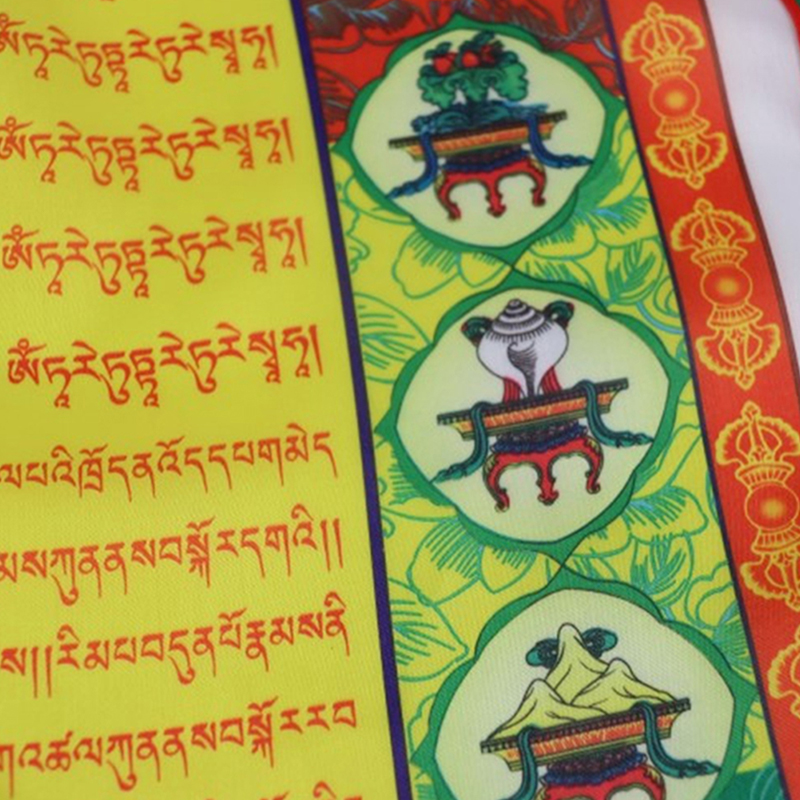 ཨོཾ་ཏཱ་རེ་ཏུཏྟཱ་རེ་ཏུ་རེ་སྭཱ་ཧཱ།
ཨོཾ་ཏཱ་རེ་ཏུཏྟཱ་རེ་ཏུ་རེ་སྭཱ་ཧཱ།
ཨོཾ་ཏཱ་རེ་ཏུཏྟཱ་རེ་ཏུ་རེ་སྭཱ་ཧཱ།
ཨོཾ་ཏཱ་རེ་ཏུཏྟཱ་རེ་ཏུ་རེ་སྭཱ་ཧཱ།
ལ་པའི་ཁྲོད་ན་འོད་དཔག་མེད
མས་ཀུན་ནས་བསྐོར་དགའི།།
ས།།རི་མ་པ་བདུན་པོ་རྣམས་ནི
ག་འཚལ་ཀུན་ནས་བསྐོར་ར་བ